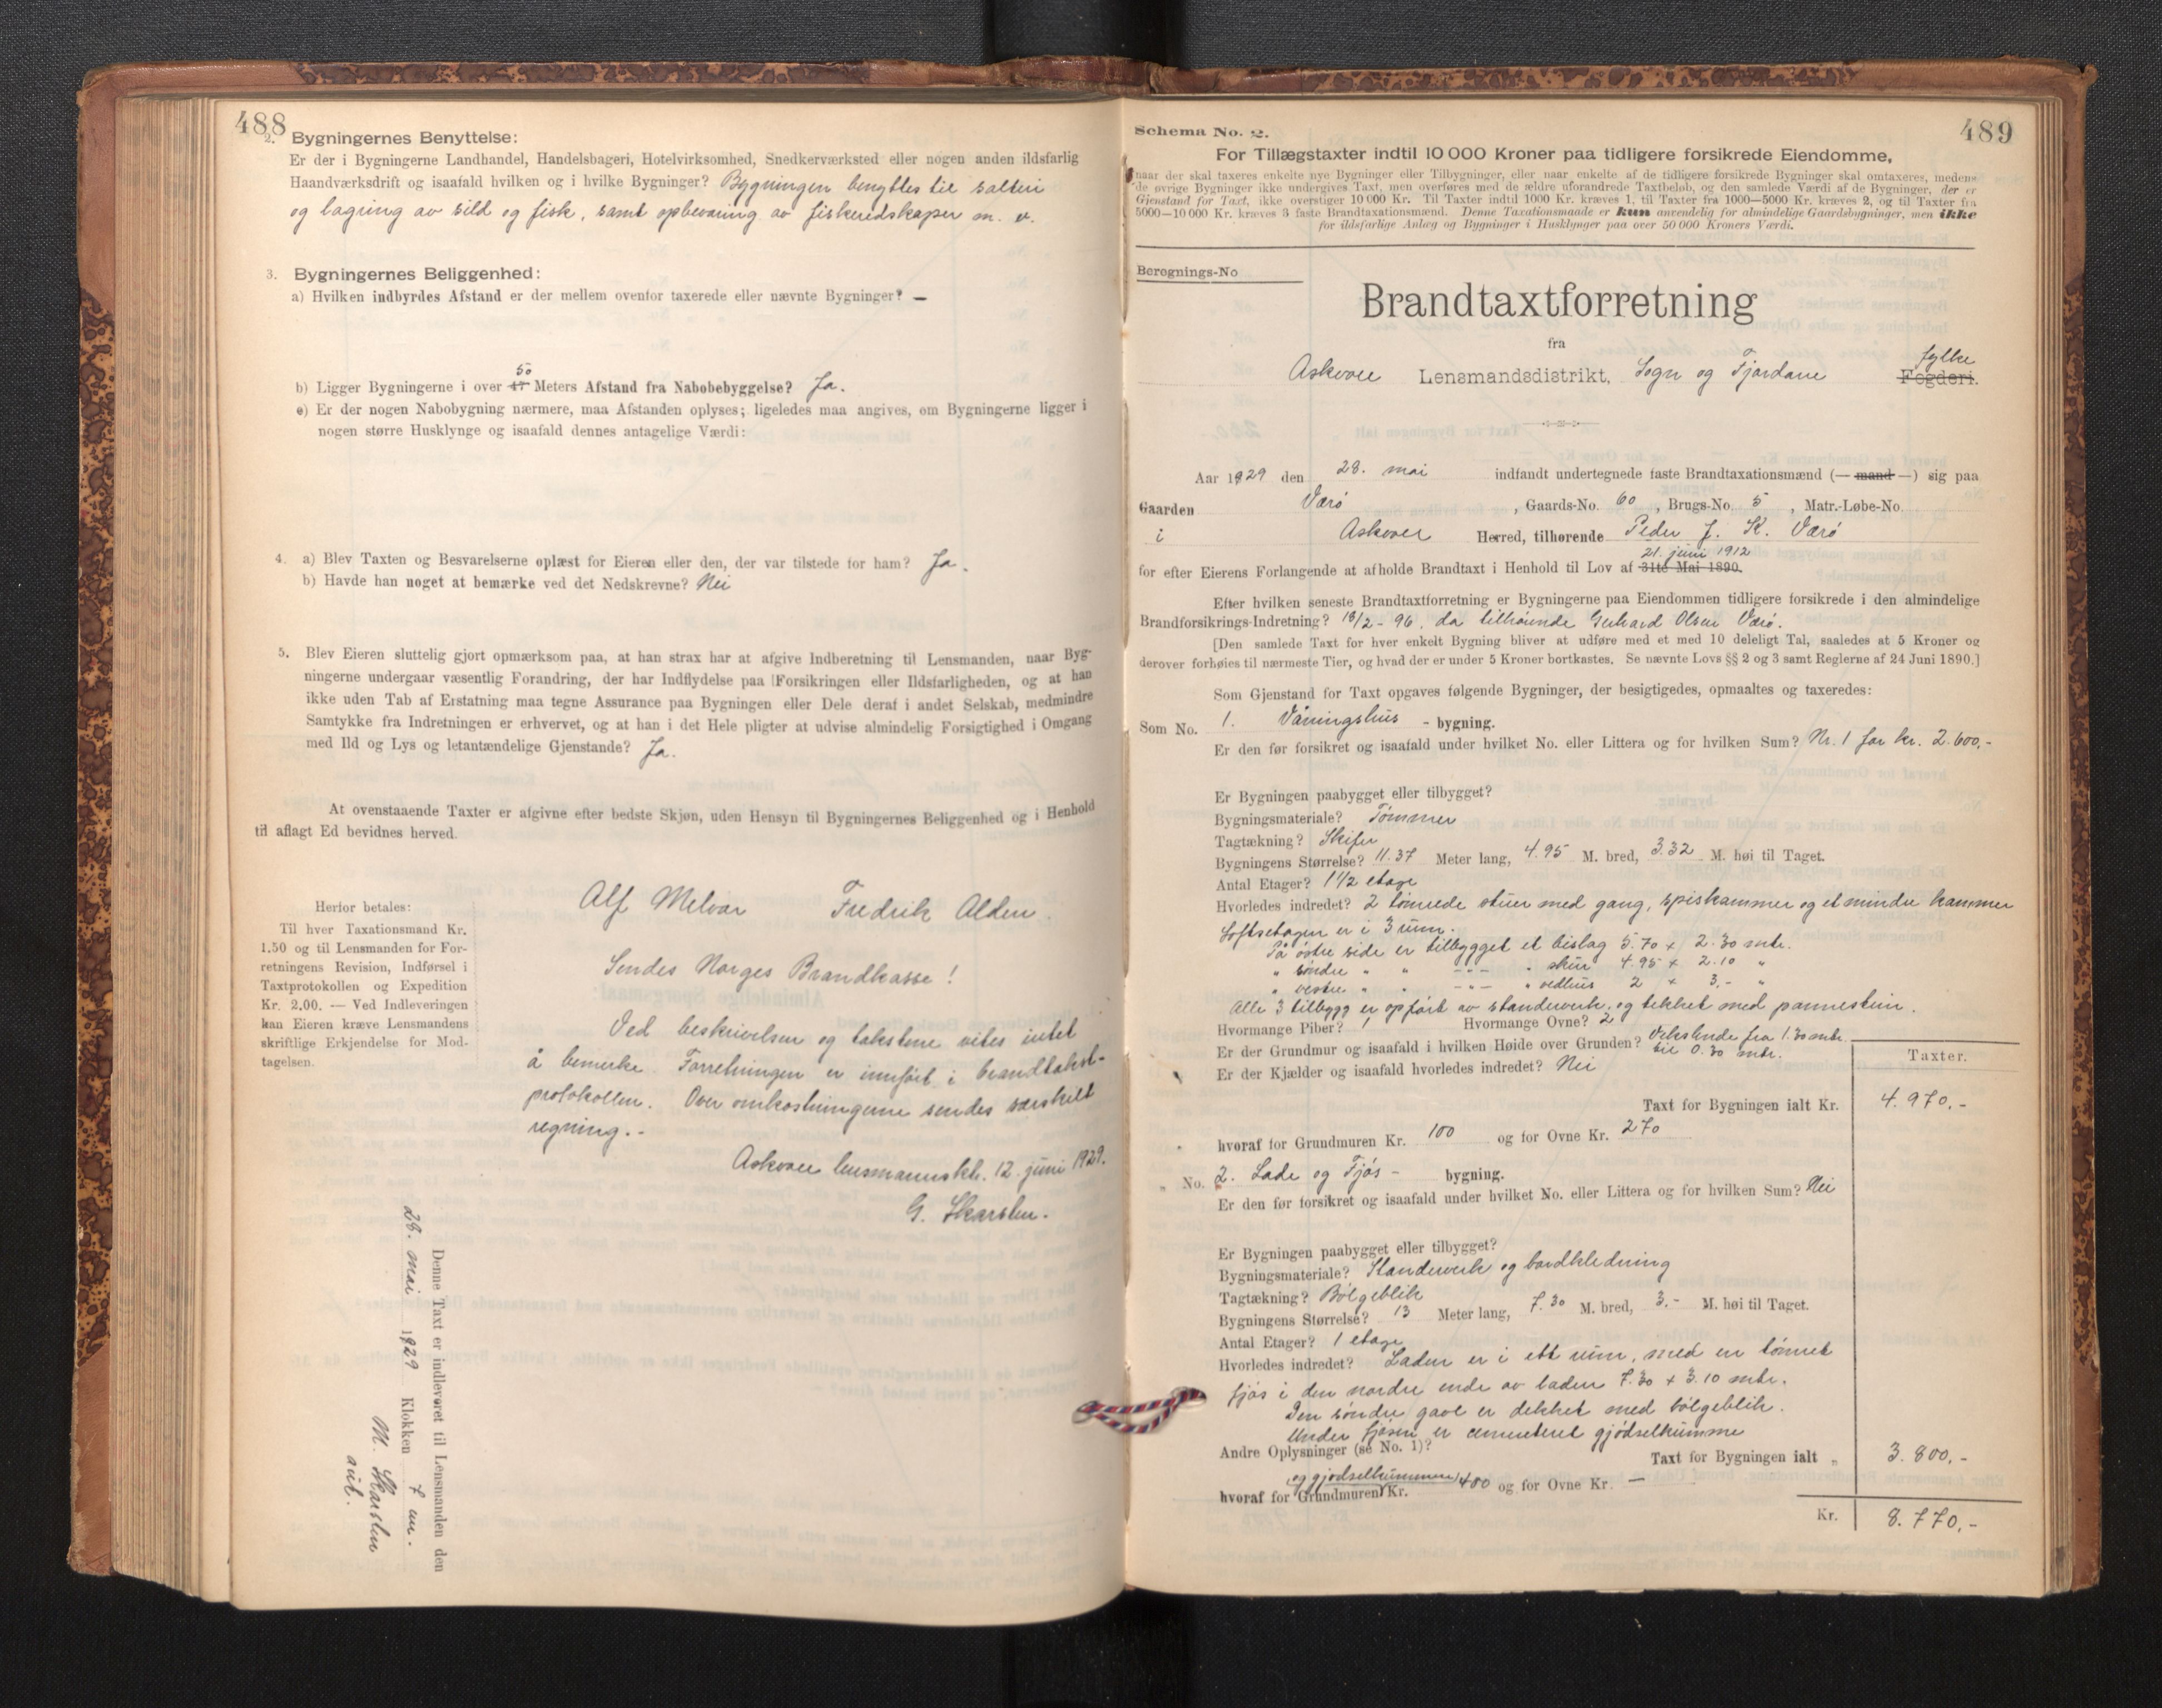 488
2. Bygningernes Benyttelse:
Er der i Bygningerne Landhandel, Handelsbageri, Hotelvirksomhed, Snedkerværksted eller nogen anden ildsfarlig
Haandværksdrift og isaafald hvilken og i hvilke Bygninger? Bygningen benyttes til salteri
og lagring av sild og fisk, samt opbevaring av fiskeredskaper m. v.
3. Bygningernes Beliggenhed:
a) Hvilken indbyrdes Afstand er der mellem ovenfor taxerede eller nævnte Bygninger? —
50
b) Ligger Bygningerne i over Meters Afstand fra Nabobebyggelse? Ja.
c) Er der nogen Nabobygning nærmere, maa Afstanden oplyses; ligeledes maa angives, om Bygningerne ligger i
nogen større Husklynge og isaafald dennes antagelige Værdi:
4. a) Blev Taxten og Besvarelserne oplæst for Eieren eller den, der var tilstede for ham? Ja.
b) Havde han noget at bemærke ved det Nedskrevne? Nei
5. Blev Eieren sluttelig gjort opmærksom paa, at han strax har at afgive Indberetning til Lensmanden, naar Byg-
ningerne undergaar væsentlig Forandring, der har Indflydelse paa Forsikringen eller Ildsfarligheden, og at han
ikke uden Tab af Erstatning maa tegne Assurance paa Bygningen eller Dele deraf i andet Selskab, medmindre
Samtykke fra Indretningen er erhvervet, og at han i det Hele pligter at udvise almindelig Forsigtighed i Omgang
med Ild og Lys og letantændelige Gjenstande? Ja.
At ovenstaaende Taxter er afgivne efter bedste Skjøn, uden Hensyn til Bygningernes Beliggenhed og i Henhold
til aflagt Ed bevidnes herved.
Alf Melvær Fredrik Alden.
Herfor betales:
Til hver Taxationsmand Kr.
1.50 og til Lensmanden for For-
retningens Revision, Indførsel i
Taxtprotokollen og Expedition
Kr. 2.00. — Ved Indleveringen
kan Eieren kræve Lensmandens
skriftlige Erkjendelse for Mod-
tagelsen.
Sendes Norges Brandkasse!
Ved beskrivelsen og takstene vites intet
å bemerke. Forretningen er innført i brandtakst-
protokollen. Over omkostningene sendes særskilt
regning.-
Askvoll lensmannskt. 12. juni 1929.
G. Skarsten.
Denne Taxt er indleveret til Lensmanden den
28. mai 1929 Klokken 7 em.
M. Skarsten
aut.
489
Schema No. 2.
For Tillægstaxter indtil 10 000 Kroner paa tidligere forsikrede Eiendomme,
naar der skal taxeres enkelte nye Bygninger eller Tilbygninger, eller naar enkelte af de tidligere forsikrede Bygninger skal omtaxeres, medens
de øvrige Bygninger ikke undergives Taxt, men overføres med de ældre uforandrede Taxtbeløb, og den samlede Værdi af de Bygninger, der er
Gjenstand for Taxt, ikke overstiger 10 000 Kr. Til Taxter indtil 1000 Kr. kræves 1, til Taxter fra 1000—5000 Kr. kræves 2, og til Taxter fra
5000—10 000 Kr. kræves 3 faste Brandtaxationsmænd. Denne Taxationsmaade er kun anvendelig for almindelige Gaardsbygninger, men ikke
for ildsfarlige Anlæg og Bygninger i Husklynger paa over 50 000 Kroners Værdi.
Beregnings-No
Brandtaxtforretning
fra
fylke
Askvoll Lensmandsdistrikt, Sogn og Fjordane Fogderi.
Aar 1929 den 28. mai indfandt undertegnede faste Brandtaxationsmænd (— mand —) sig paa
Gaarden Værö, Gaards-No. 60, Brugs-No. 5, Matr.-Løbe-No.
i Askvoll Herred, tilhørende Peder J. K. Værö
21. juni 1912
for efter Eierens Forlangende at afholde Brandtaxt i Henhold til Lov af 31te Mai 1890.
Efter hvilken seneste Brandtaxtforretning er Bygningerne paa Eiendommen tidligere forsikrede i den almindelige
Brandforsikrings-Indretning? 18/2 - 96, da tilhörende Gerhard Olsen Værö.
[Den samlede Taxt for hver enkelt Bygning bliver at udføre med et med 10 deleligt Tal, saaledes at 5 Kroner og
derover forhøies til nærmeste Tier, og hvad der er under 5 Kroner bortkastes. Se nævnte Lovs §§ 2 og 3 samt Reglerne af 24 Juni 1890.]
Som Gjenstand for Taxt opgaves følgende Bygninger, der besigtigedes, opmaaltes og taxeredes:
Som No. 1. Våningshus - bygning.
Er den før forsikret og isaafald under hvilket No. eller Littera og for hvilken Sum? Nr. 1 for kr. 2.600,-
Er Bygningen paabygget eller tilbygget?
Bygningsmateriale? Tømmer
Tagtækning? Skifer
Bygningens Størrelse? 11.37 Meter lang, 4.95 M. bred, 3.32 M. høi til Taget.
Antal Etager? 1 1/2 etage
Hvorledes indredet? 2 tömrede stuer med gang, spiskammer og et mindre kammer
Loftsetagen er i 3 rum.
På östre side er tilbygget et bislag 5.70 x 2.30 mtr.
" söndre " " -"- " skur 4.95 x 2.10 "
" vestre " " -"- " vedhus 2 x 3.- "
Alle 3 tilbygg er opfört av standerverk, og tekket med pannestein.
Hvormange Piber? 1 Hvormange Ovne? 2
Er der Grundmur og isaafald i hvilken Høide over Grunden? Vekslende fra 1.30 mtr.
til 0.30 mtr.
Er der Kjælder og isaafald hvorledes indredet? Nei
Taxter.
Taxt for Bygningen ialt Kr. 4.970,-
hvoraf for Grundmuren Kr. 100 og for Ovne Kr. 270
" No. 2. Lade og Fjös - bygning.
Er den før forsikret og isaafald under hvilket No. eller Littera og for hvilken Sum? Nei
Er Bygningen paabygget eller tilbygget?
Bygningsmateriale? Standerverk og bordkledning
Tagtækning? Bölgeblik
Bygningens Størrelse? 13 Meter lang, 7.30 M. bred, 3.- M. høi til Taget.
Antal Etager? 1 etage
Hvorledes indredet? Laden er i ett rum, med en tömret
fjös i den nordre ende av laden 7.30 x 3.10 mtr.
Den söndre gavl er dekket med bölgeblik.
Under fjösen er cementeret gjödselkumme
Andre Oplysninger (se No. 1)?
Taxt for Bygningen ialt " 3.800,-
(og gjødselkummen)
hvoraf for Grundmuren Kr. 400 og for Ovne Kr. —
Kr. 8.770,-